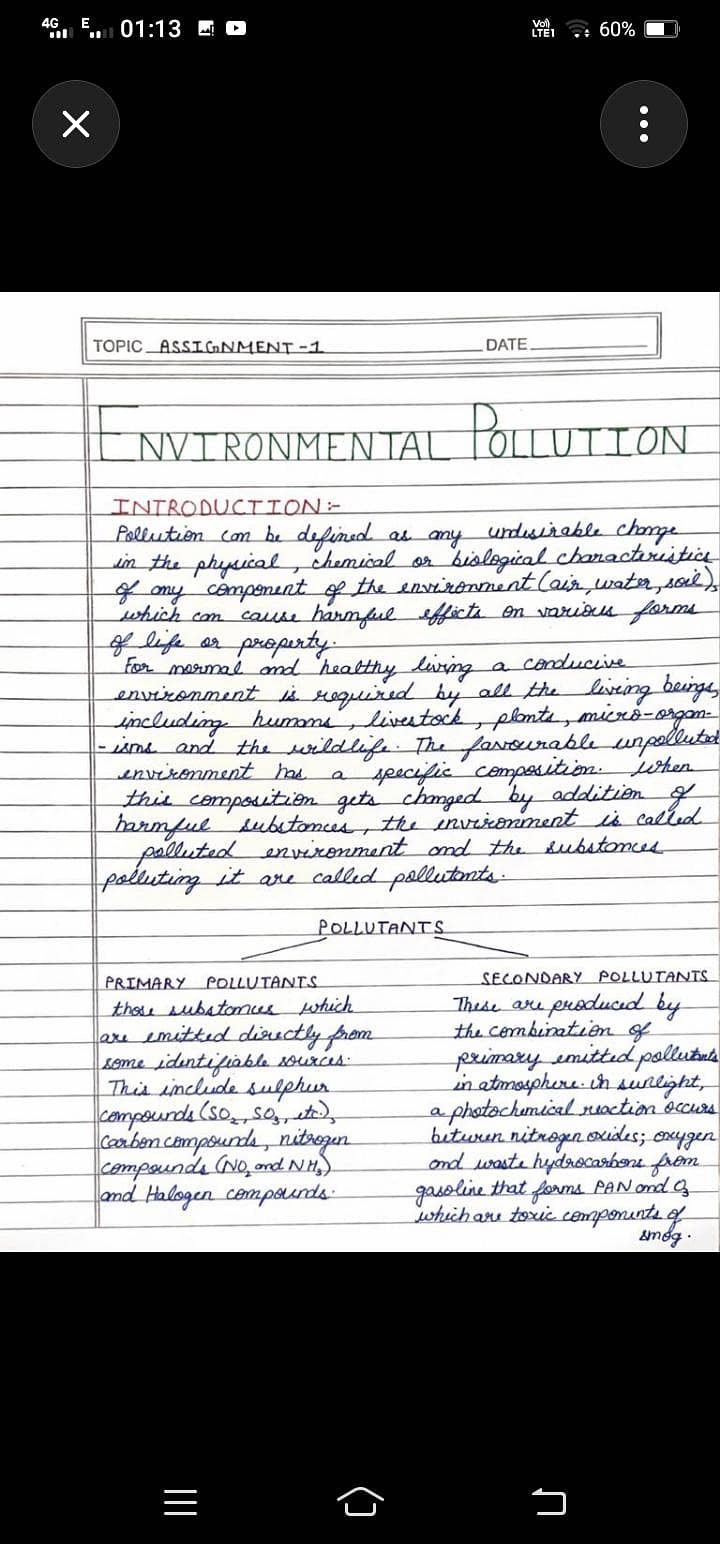 4G E 01:13 Vo) LTE1 60%
TOPIC ASSIGNMENT -1 DATE
ENVIRONMENTAL POLLUTION
INTRODUCTION :-
Pollution can be defined as any undesirable change
in the physical , chemical or biological characteristics
of any component of the environment (air, water, soil),
which can cause harmful effects on various forms
of life or property.
For normal and healthy living a conducive
environment is required by all the living beings,
including humans , livestock , plants , micro-organ-
- isms and the wildlife. The favourable unpolluted
environment has a specific composition. When
this composition gets changed by addition of
harmful substances , the environment is called
polluted environment and the substances
polluting it are called pollutants.
POLLUTANTS
PRIMARY POLLUTANTS
those substances which
are emitted directly from
some identifiable sources.
This include sulphur
compounds (SO₂, SO₃, etc),
Carbon compounds, nitrogen
compounds (NO₂ and NH₃)
and Halogen compounds.
SECONDARY POLLUTANTS
These are produced by
the combination of
primary emitted pollutants
in atmosphere. In sunlight,
a photochemical reaction occurs
between nitrogen oxides; oxygen
and waste hydrocarbons from
gasoline that forms PAN and O₃
which are toxic components of
smog.